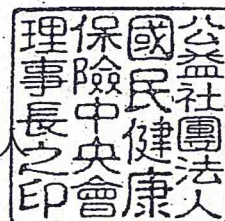 公益社團法人
國民健康
保險中央會
理事長之印
人